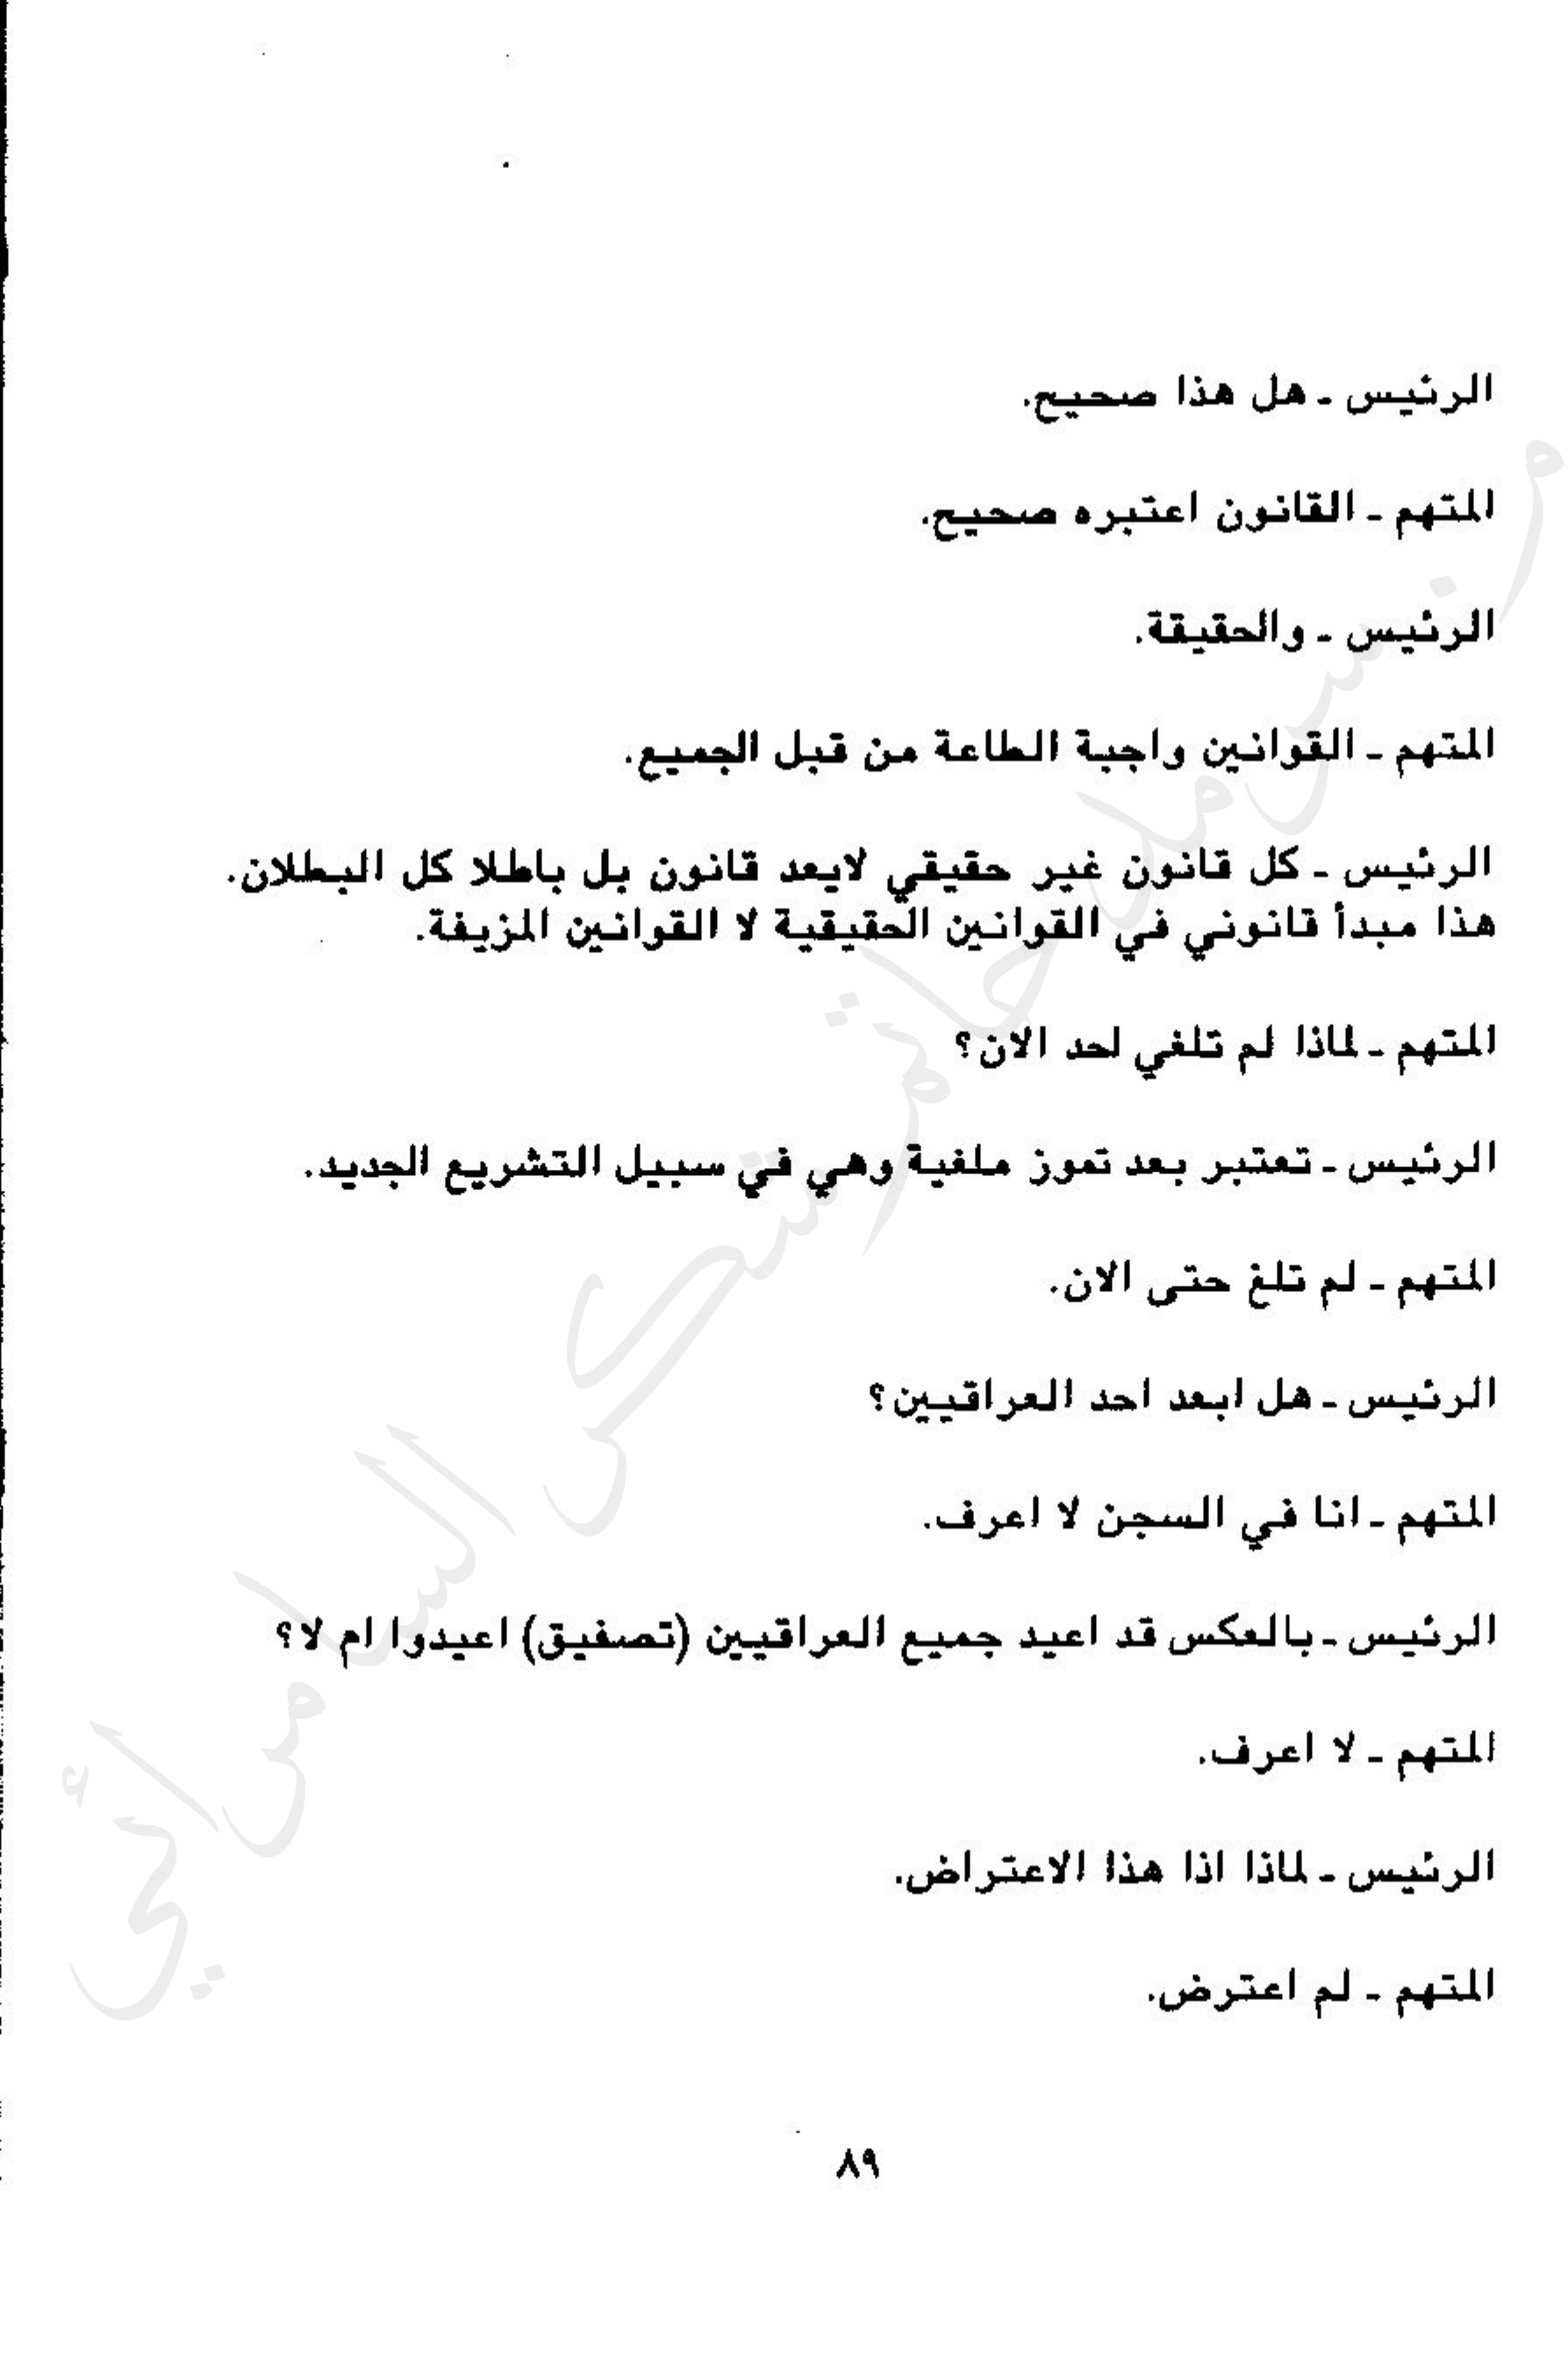 الرئيس ـ هل هذا صحيح.
المتهم ـ القانون اعتبره صحيح.
الرئيس ـ والحقيقة.
المتهم ـ القوانين واجبة الطاعة من قبل الجميع.
الرئيس ـ كل قانون غير حقيقي لايعد قانون بل باطلا كل البطلان.
هذا مبدأ قانوني في القوانين الحقيقية لا القوانين المزيفة.
المتهم ـ لماذا لم تلغي لحد الان؟
الرئيس ـ تعتبر بعد تموز ملغية وهي في سبيل التشريع الجديد.
المتهم ـ لم تلغ حتى الان.
الرئيس ـ هل ابعد احد العراقيين؟
المتهم ـ انا في السجن لا اعرف.
الرئيس ـ بالعكس قد اعيد جميع العراقيين (تصفيق) اعيدوا ام لا؟
المتهم ـ لا اعرف.
الرئيس ـ لماذا اذا هذا الاعتراض.
المتهم ـ لم اعترض.
٨٩